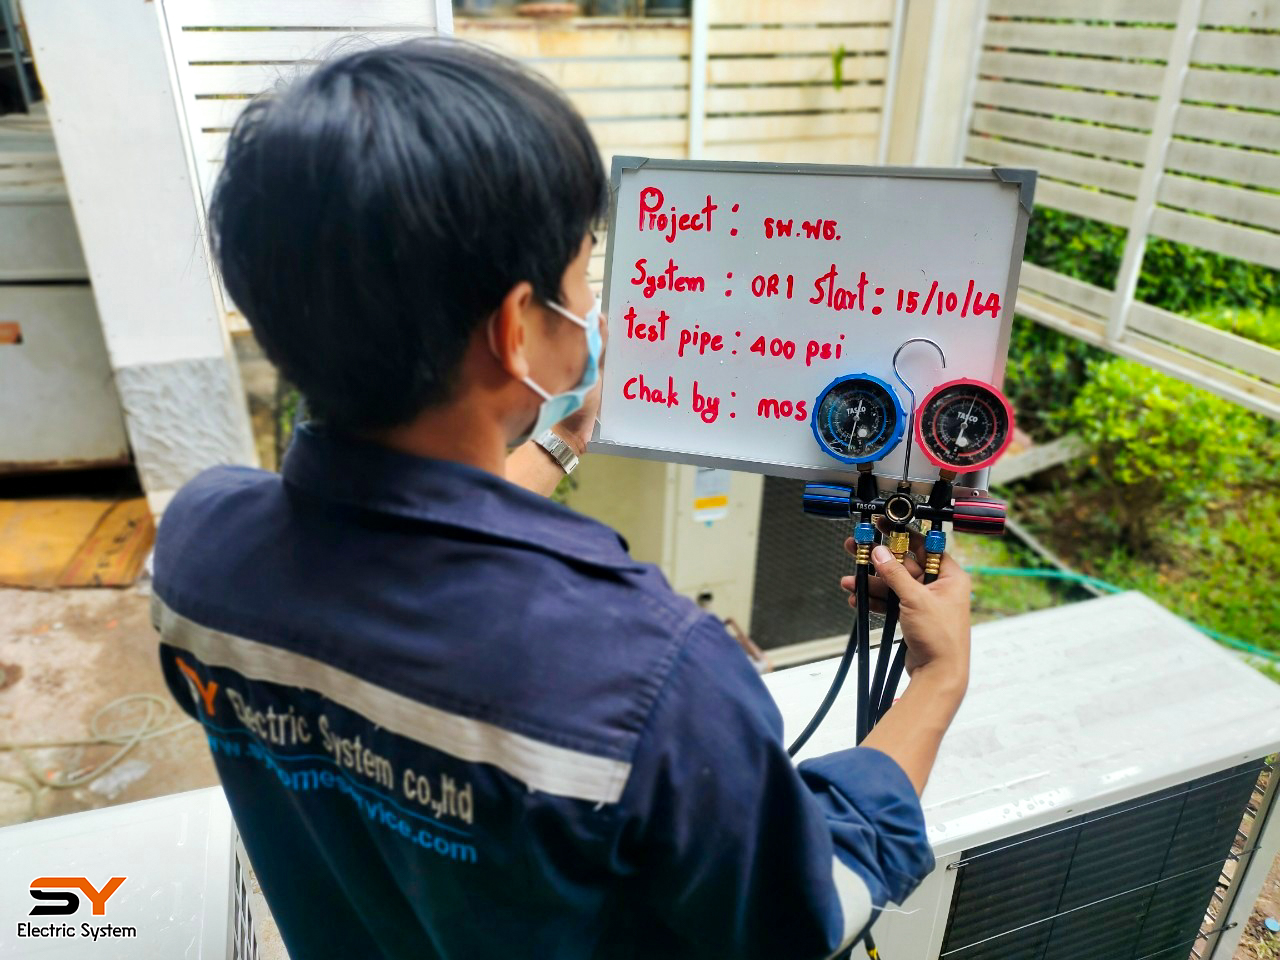 Project : รพ.พธ.
System : OR1 Start : 15/10/64
test pipe : 400 psi
Chak by : mos
TASCO
TASCO
TASCO
SY Electric System co.,ltd
www.syhomeservice.com
SY
Electric System